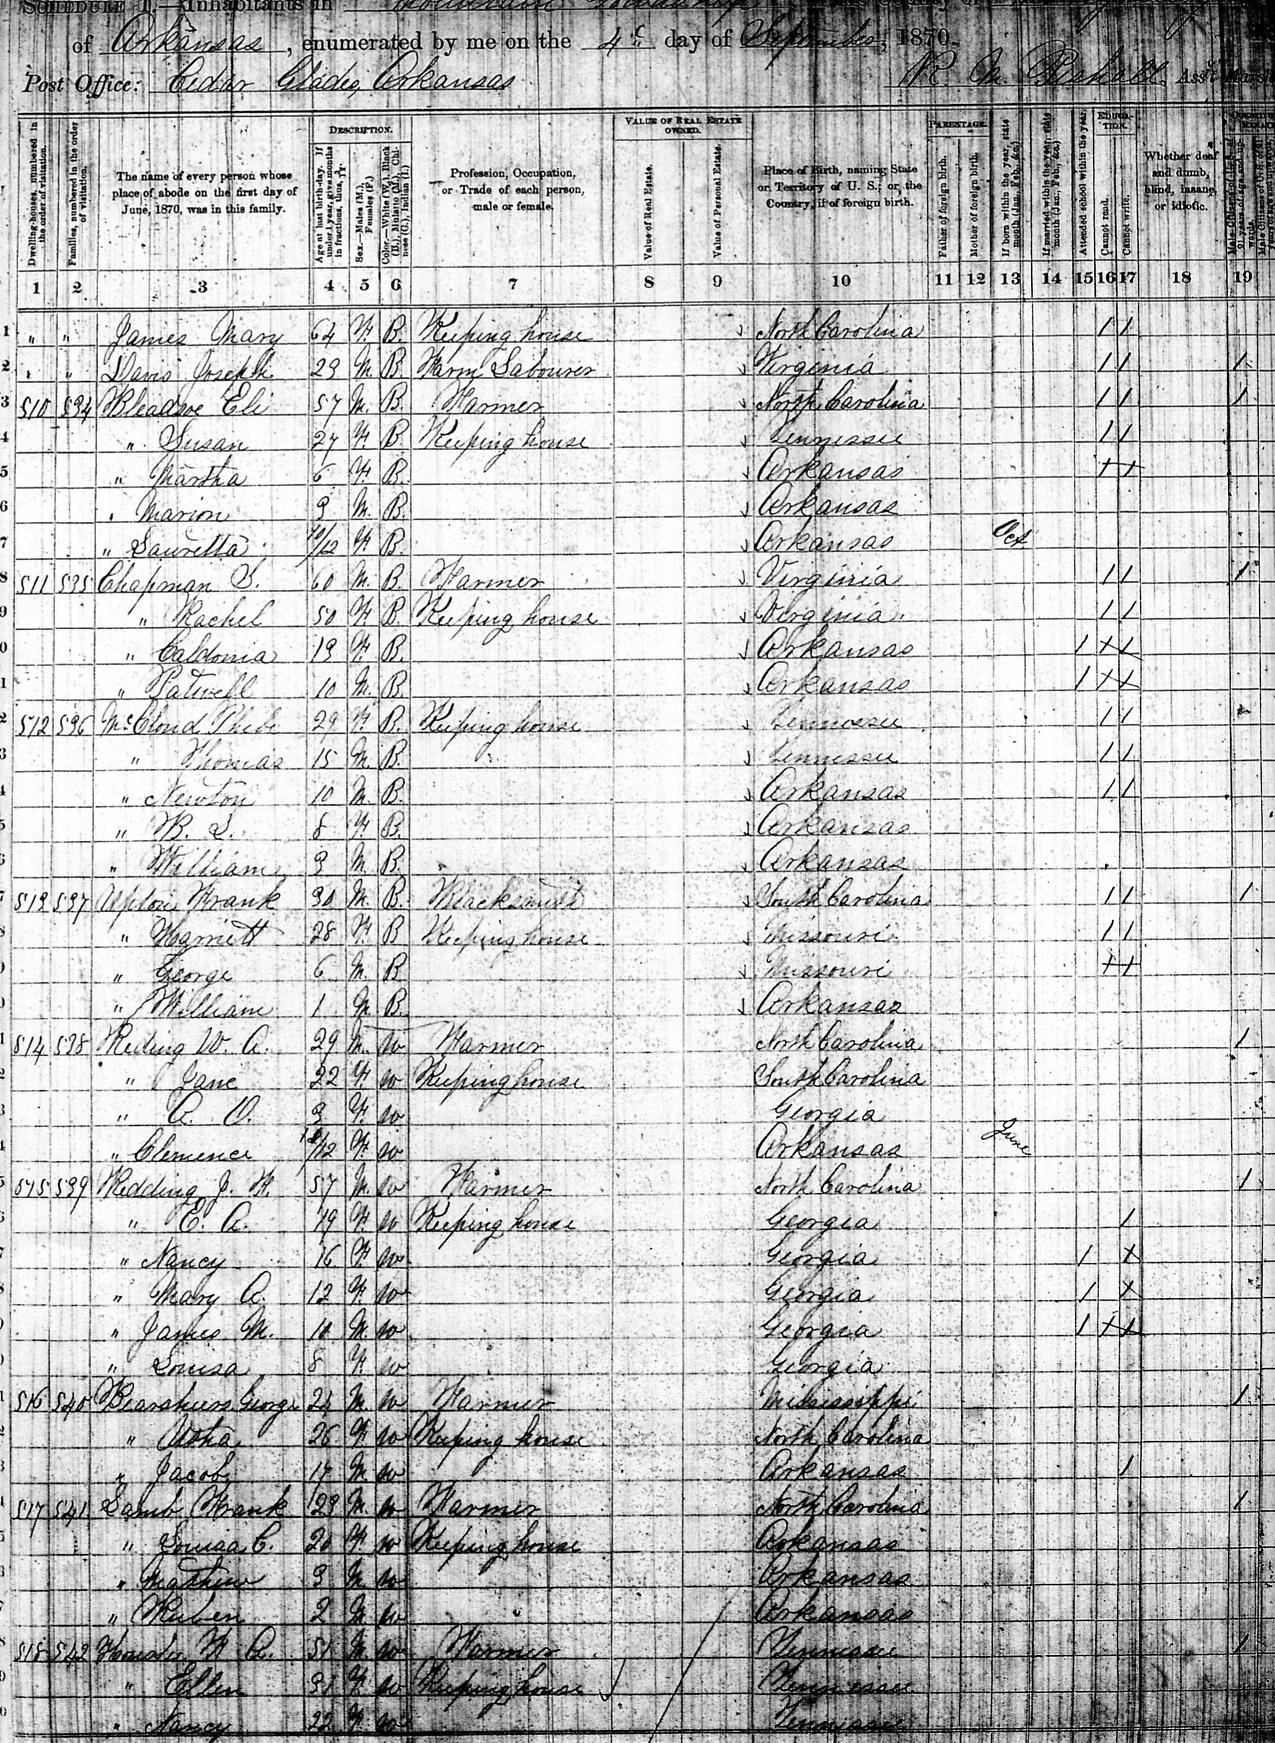 SCHEDULE 1.—Inhabitants in Mountain Township
of Arkansas, enumerated by me on the 4th day of September, 1870.
Post Office: Cedar Glades, Arkansas R. M. Ass't Marshal
DESCRIPTION. VALUE OF REAL ESTATE OWNED. PARENTAGE. EDUCATION.
Dwelling-houses, numbered in the order of visitation. Families, numbered in the order of visitation. The name of every person whose place of abode on the first day of June, 1870, was in this family. Age at last birth-day. If under 1 year, give months in fractions, thus, 3/12. Sex.—Males (M.), Females (F.) Color.—White (W.), Black (B.), Mulatto (M.), Chinese (C.), Indian (I.) Profession, Occupation, or Trade of each person, male or female. Value of Real Estate. Value of Personal Estate. Place of Birth, naming State or Territory of U. S.; or the Country, if of foreign birth. Father of foreign birth. Mother of foreign birth. If born within the year, state month (Jan., Feb., &c.) If married within the year, state month (Jan., Feb., &c.) Attended school within the year. Cannot read. Cannot write. Whether deaf and dumb, blind, insane, or idiotic.
1 2 3 4 5 6 7 8 9 10 11 12 13 14 15 16 17 18 19
1 " " James Mary 64 F. B. Keeping house North Carolina 1 1
2 " " Davis Joseph 23 M B. Farm Labourer Virginia 1 1 1
3 510 534 Bleadsoe Eli 57 M. B. Farmer North Carolina 1 1 1
4 " Susan 27 F. B Keeping house Tennessee 1 1
5 " Martha 6 F. B. Arkansas
6 " Marion 3 M. B. Arkansas
7 " Lauretta 10/12 F. B. Arkansas Oct
8 511 535 Chapman S. 60 M. B. Farmer Virginia 1 1 1
9 " Rachel 50 F. B. Keeping house Virginia 1 1
0 " Caldonia 13 F. B. Arkansas 1
1 " 10 M. B. Arkansas 1
2 512 536 McCloud Phebe 29 F. B. Keeping house Tennessee 1 1
3 " Thomas 15 M. B. Tennessee 1 1
4 " Newton 10 M. B. Arkansas 1 1
5 " 8 F. B. Arkansas
6 " William 3 M. B. Arkansas
7 513 537 Upton Frank 30 M. B. Blacksmith South Carolina 1 1 1
8 " Harriett 28 F. B Keeping house Missouri 1 1
9 " George 6 M. B Missouri
0 " William 1 M. B. Arkansas
1 514 538 Reding W. A. 29 M. W Farmer North Carolina 1
2 " Jane 22 F. W Keeping house South Carolina
3 " A. O. 3 F. W Georgia
4 " Clemence /12 F. W Arkansas June
5 515 539 Redding J. 57 M. W Farmer North Carolina 1
6 " E. A. 19 F. W Keeping house Georgia 1
7 " Nancy 16 F. W Georgia 1 X
8 " Mary A. 12 F. W Georgia 1 X
9 " James M. 10 M. W Georgia 1
0 " Louisa 8 F. W Georgia
1 516 540 George 24 M. W Farmer Mississippi 1
2 " 26 F. W Keeping house North Carolina
3 " Jacob 17 M. W Arkansas 1
4 517 541 Lamb Frank 23 M. W Farmer North Carolina 1
5 " Louisa C. 20 F. W Keeping house Arkansas
6 " Mathew 3 M. W Arkansas
7 " Ruben 2 M. W Arkansas
8 518 542 51 M. W Farmer Tennessee 1
9 " Ellen 31 F. W Keeping house Tennessee
0 " Nancy 22 F. W Tennessee